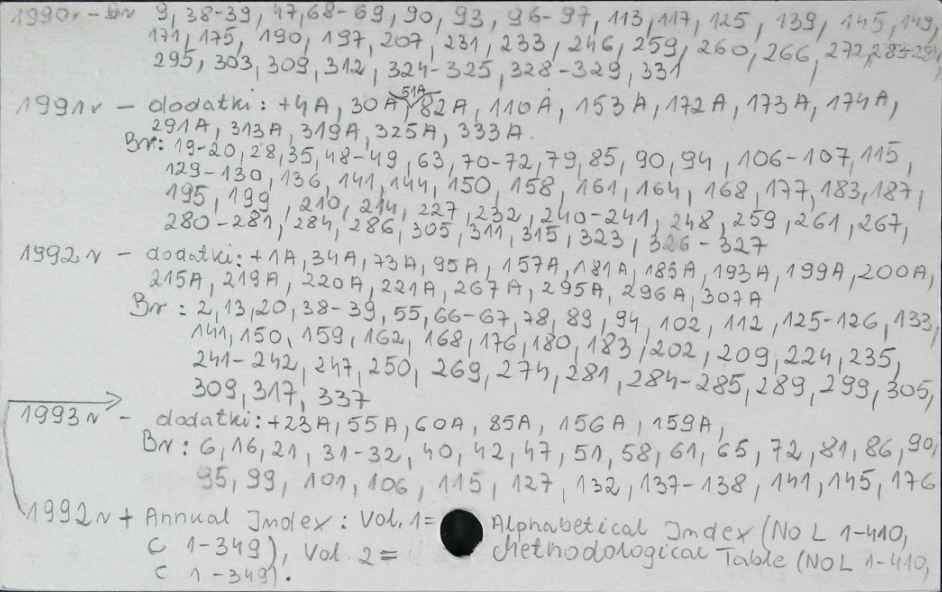 1990r - Br 9, 38-39, 47, 68-69, 90, 93, 96-97, 113, 117, 125, 139, 145, 149,
171, 175, 190, 197, 207, 231, 233, 246, 259, 260, 266, 272, 283-284,
295, 303, 309, 312, 324-325, 328-329, 331
51A
1991r - dodatki: +4A, 30A, 82A, 110A, 153A, 172A, 173A, 174A,
291A, 313A, 319A, 325A, 333A.
Br: 19-20, 28, 35, 48-49, 63, 70-72, 79, 85, 90, 94, 106-107, 115,
129-130, 136, 141, 144, 150, 158, 161, 164, 168, 177, 183, 187,
195, 199, 210, 214, 227, 232, 240-241, 248, 259, 261, 267,
280-281, 284, 286, 305, 311, 315, 323, 326-327
1992r - dodatki: +1A, 34A, 73A, 95A, 157A, 181A, 185A, 193A, 199A, 200A,
215A, 219A, 220A, 221A, 267A, 295A, 296A, 307A
Br: 2, 13, 20, 38-39, 55, 66-67, 78, 89, 94, 102, 112, 125-126, 133,
141, 150, 159, 162, 168, 176, 180, 183, 202, 209, 224, 235,
241-242, 247, 250, 269, 274, 281, 284-285, 289, 299, 305,
309, 317, 337
1993r - dodatki: +23A, 55A, 60A, 85A, 156A, 159A,
Br: 6, 16, 21, 31-32, 40, 42, 47, 51, 58, 61, 65, 72, 81, 86, 90,
95, 99, 101, 106, 115, 127, 132, 137-138, 141, 145, 176
1992r + Annual Index: Vol. 1 = Alphabetical Index (No L 1-410,
C 1-349), Vol. 2 = Methodological Table (No L 1-410,
C 1-349).